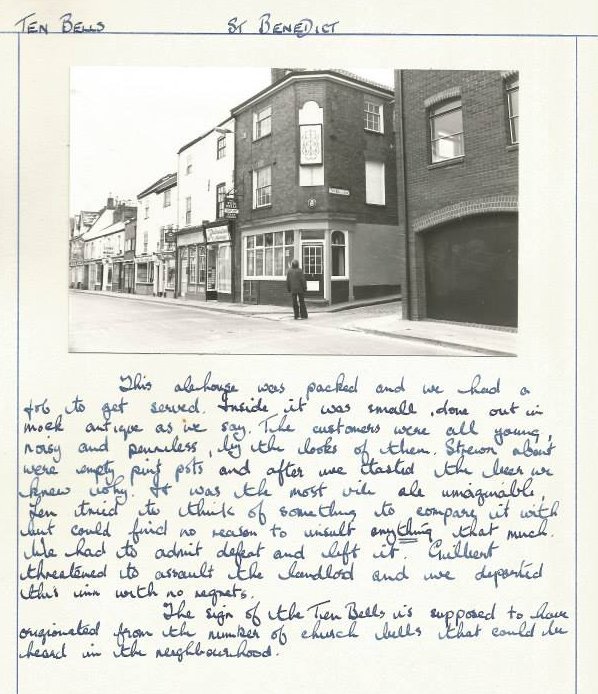 TEN BELLS ST BENEDICT
This alehouse was packed and we had a
job to get served. Inside it was small, done out in
mock antique as we say. The customers were all young,
noisy and penniless, by the looks of them. Strewn about
were empty pint pots and after we tasted the beer we
knew why. It was the most vile ale umaginable,
Len tried to think of something to compare it with
but could find no reason to insult anything that much.
We had to admit defeat and left it. Guilbert
threatened to assault the landlod and we departed
this inn with no regrets.
The sign of the Ten Bells is supposed to have
origionated from the number of church bells that could be
heard in the neighbourhood.